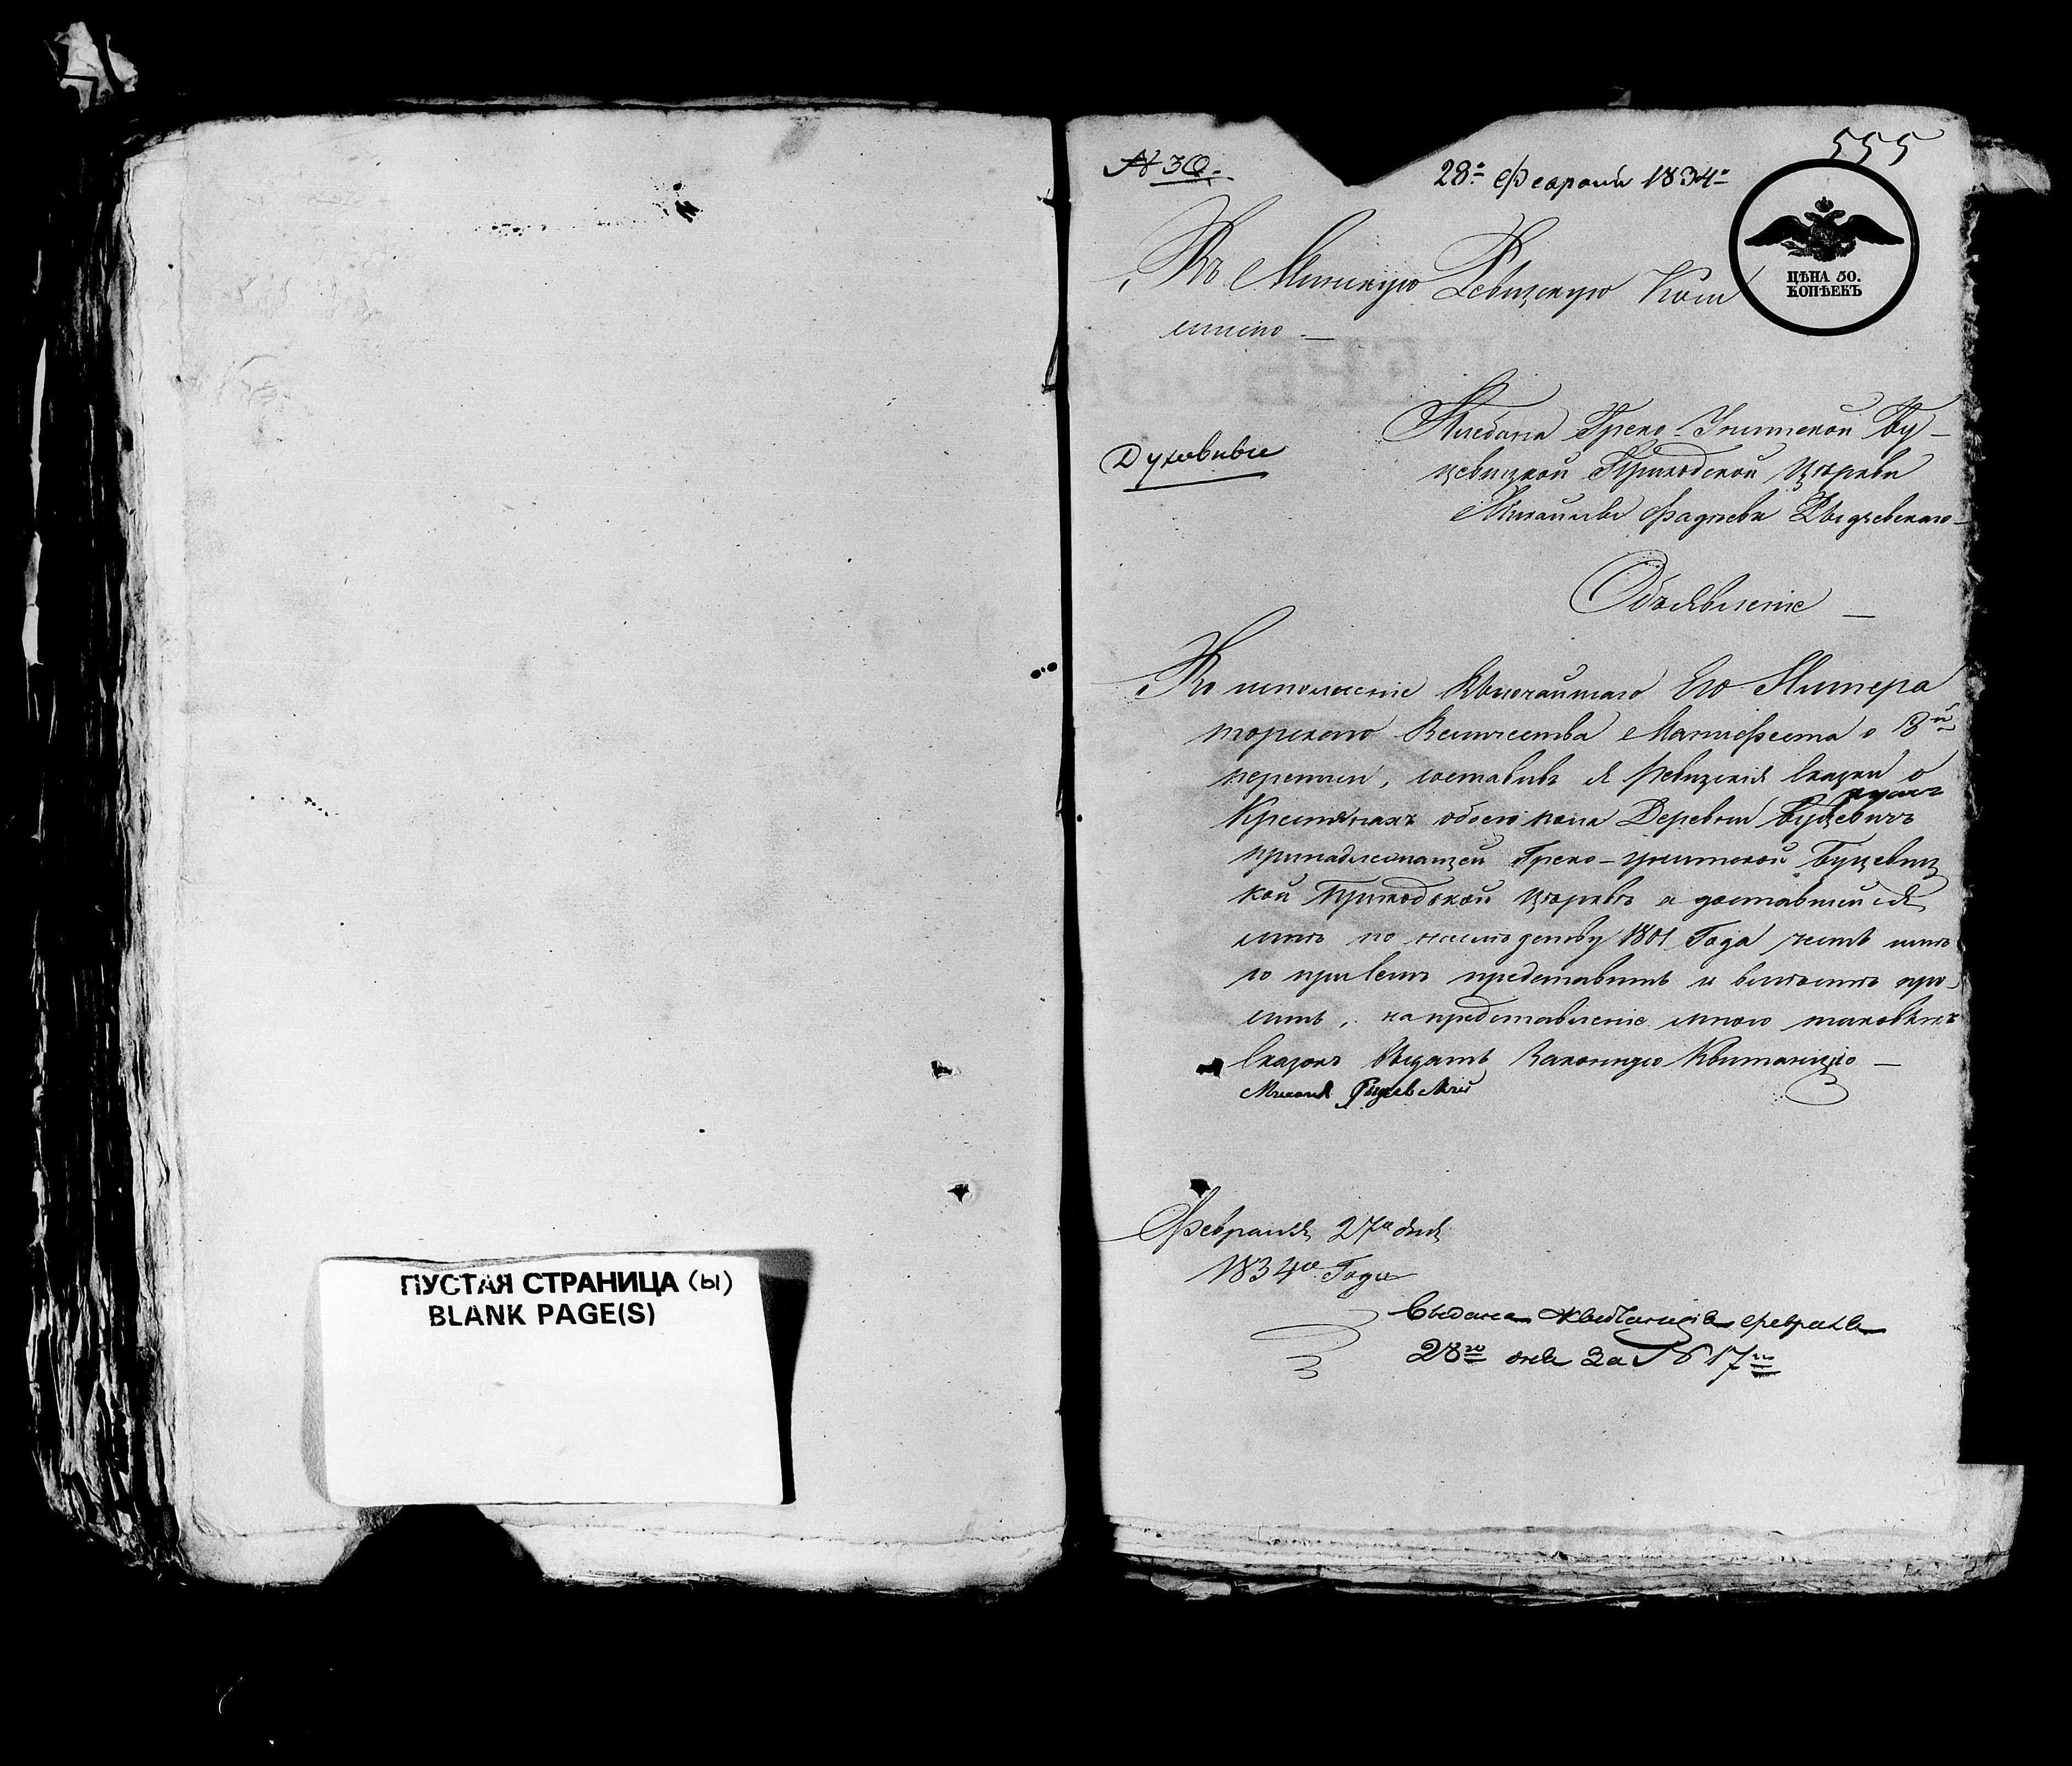 ПУСТАЯ СТРАНИЦА (Ы)
BLANK PAGE(S)
№ 30.
28го Февраля 1834го
555
ЦѢНА 50.
КОПѢЕКЪ
Въ Минскую Ревизскую Ком
мисію —
Духовные
Плебана Греко-Унитской Бу-
цевицкой Приходской Церкви
Михаила Фадѣева
Объявленіе —
Во исполненіе Высочайшаго Его Импера
торскаго Величества Манифеста о 8й
переписи, составивъ я Ревизскія Сказки о
душахъ
Крестьянахъ обоего пола Деревни Буцевичъ
принадлежащей Греко-унитской Буцевиц
кой Приходской Церквѣ а доставшейся
по 1801 Года честь имѣ
ю при семъ представить и вмѣстѣ про-
сить, на представленіе мною таковыхъ
Сказокъ выдать Законную Квитанцію —
Михаилъ
Февраля 27го дня
1834го Года
Выдана Квитанція февраля
28го дня за № 17м